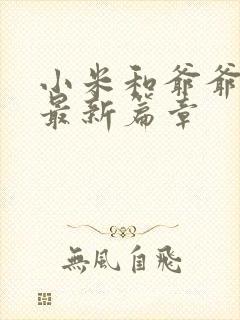 小米和爷爷
最新篇章
無風自飛